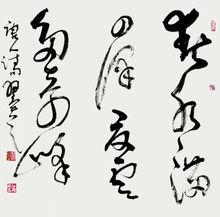 春水满
四泽夏云
多奇峰